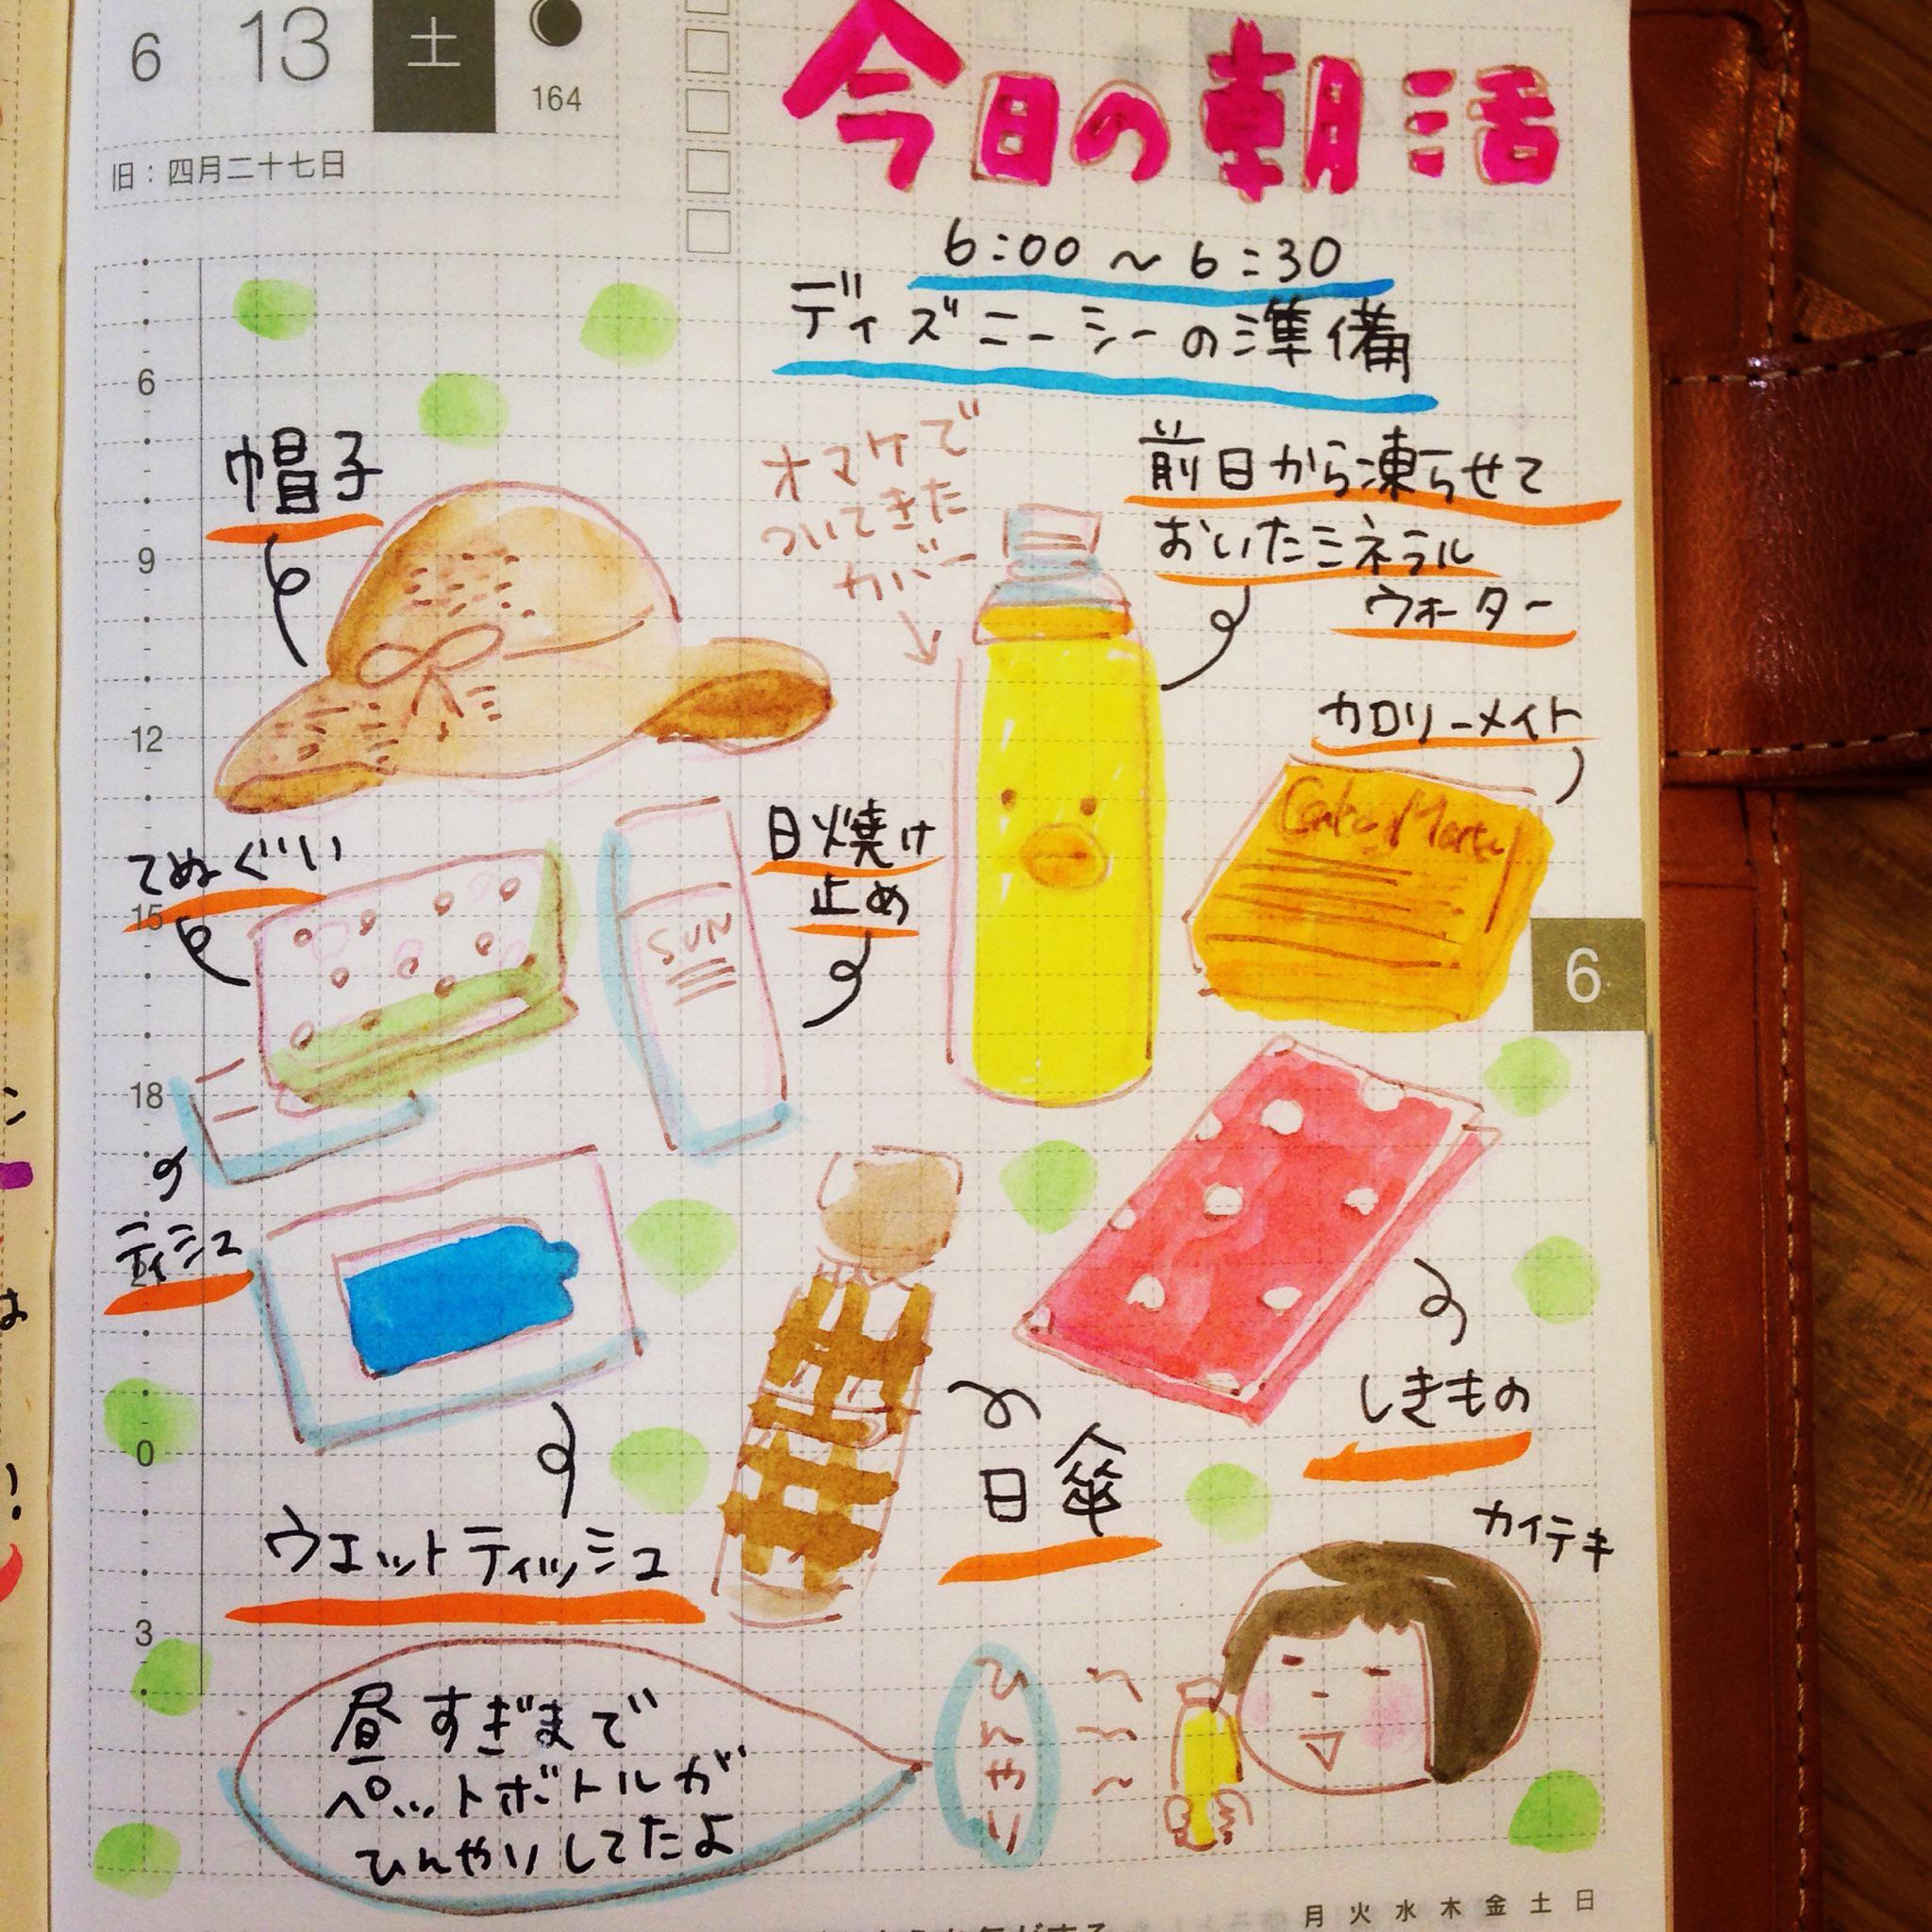 6 13 土 164
旧：四月二十七日
今日の朝活
6:00 ～ 6:30
ディズニーシーの準備
帽子
オマケで
ついてきた
カバー
前日から凍らせて
おいたミネラル
ウォーター
カロリーメイト
てぬぐい
日焼け
止め
SUN
ティシュ
ウェットティッシュ
日傘
しきもの
カイテキ
ひんやり
昼すぎまで
ペットボトルが
ひんやりしてたよ
6
9
12
15
18
0
3
6
月 火 水 木 金 土 日